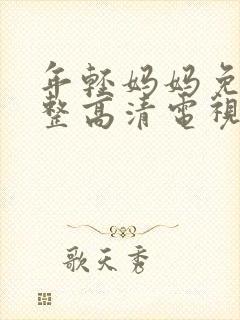 年輕妈妈免
整高清電視
歌天秀